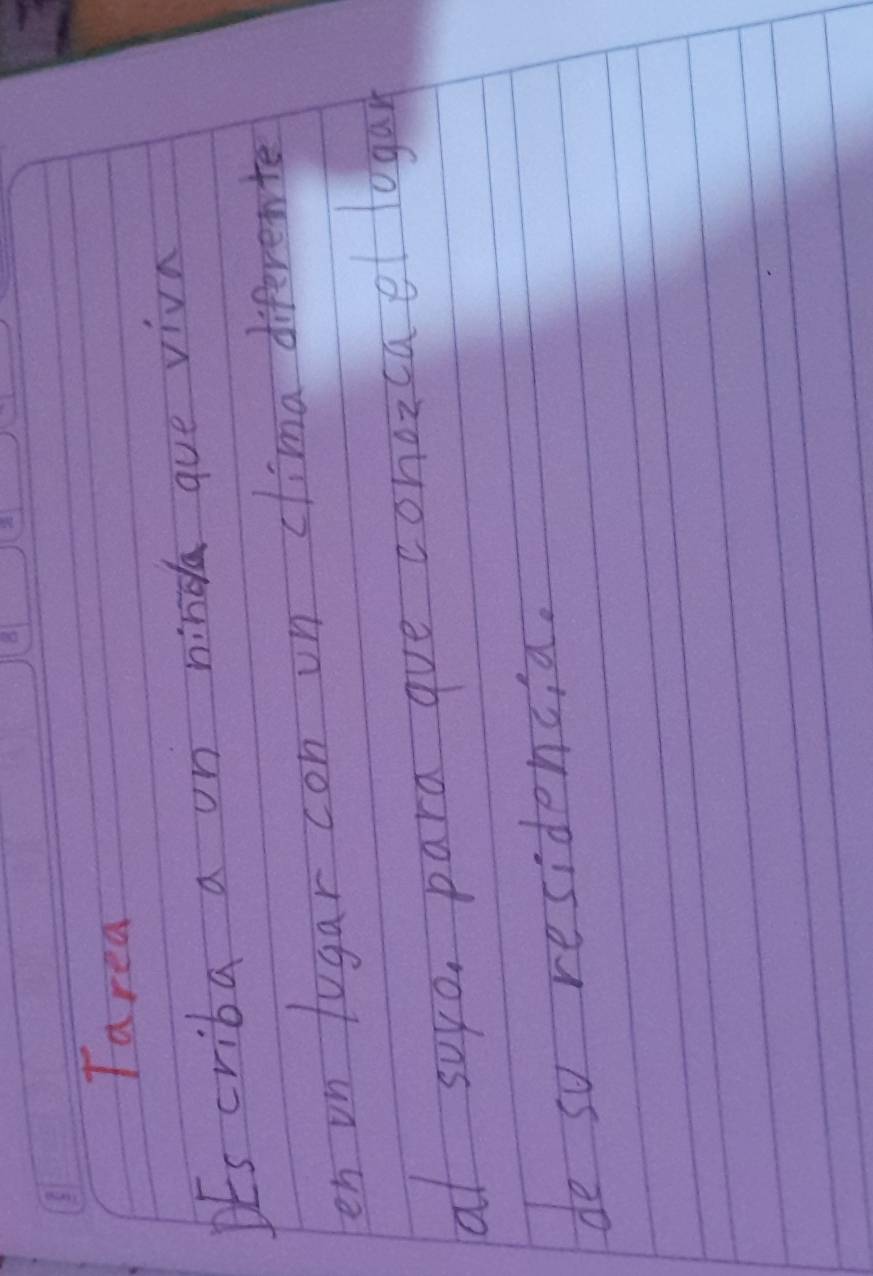 Tarea
Escriba a un niño/a que viva
en un lugar con un clima diferente
al suyo, para que conozca el lugar
de su residencia.